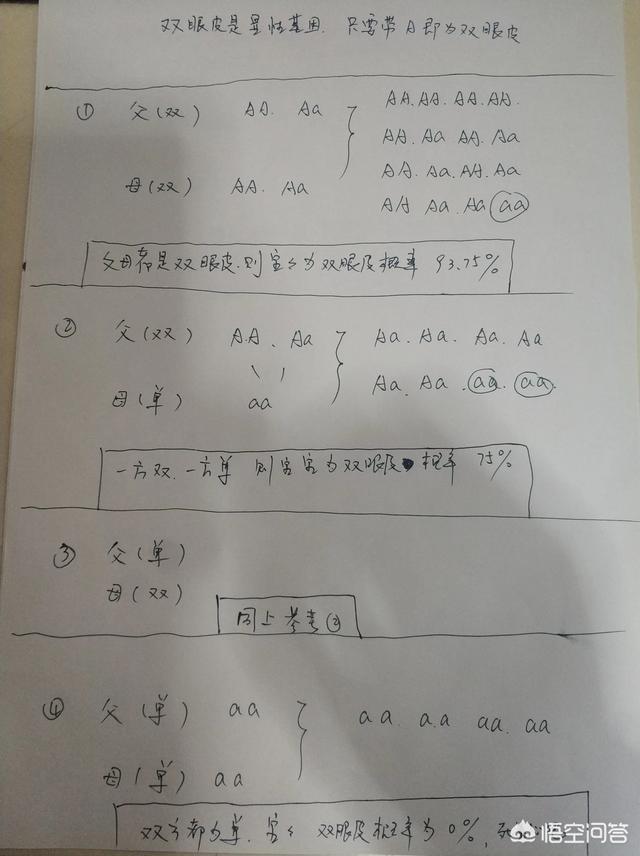 双眼皮是显性基因. 只要带A即为双眼皮
① 父(双) AA. Aa
母(双) AA. Aa
AA. AA. AA. AA.
AA. Aa AA. Aa
AA. Aa. AA. Aa
AA Aa. Aa aa
父母都是双眼皮.则宝宝为双眼皮概率 93.75%
② 父(双) AA、Aa
母(单) aa
Aa. Aa. Aa. Aa
Aa. Aa. aa. aa.
一方双.一方单 则宝宝为双眼皮 概率 75%
③ 父(单)
母(双)
同上参考②
④ 父(单) aa
母(单) aa
aa. aa aa. aa
双方都为单.宝宝 双眼皮概率为0%,
悟空问答